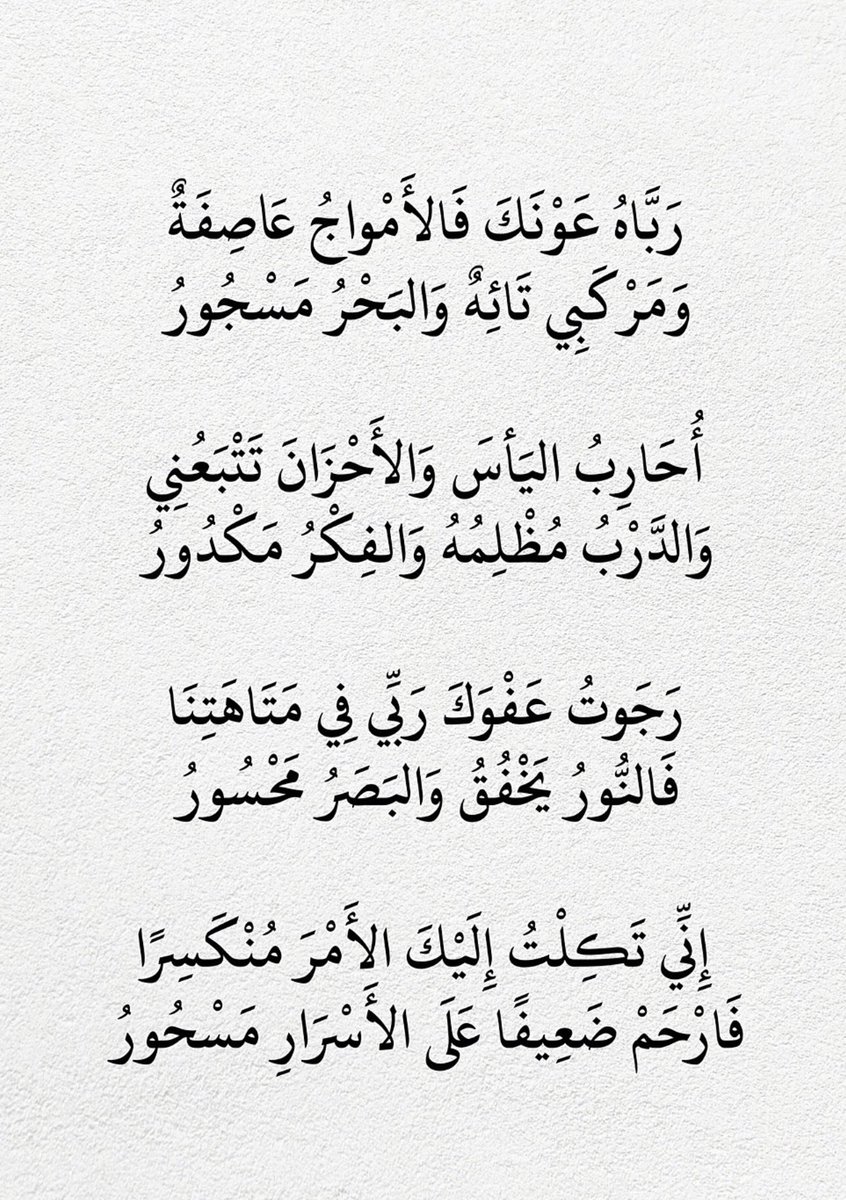 رَبَّاهُ عَوْنَكَ فَالأَمْواجُ عَاصِفَةٌ
وَمَرْكَبِي تَائِهٌ وَالبَحْرُ مَسْجُورُ
أُحَارِبُ اليَأسَ وَالأَحْزَانَ تَتْبَعُنِي
وَالدَّرْبُ مُظْلِمُهُ وَالفِكْرُ مَكْدُورُ
رَجَوتُ عَفْوَكَ رَبِّي فِي مَتَاهَتِنَا
فَالنُّورُ يَخْفُقُ وَالبَصَرُ مَحْسُورُ
إِنِّي تَكِلْتُ إِلَيْكَ الأَمْرَ مُنْكَسِرًا
فَارْحَمْ ضَعِيفًا عَلَى الأَسْرَارِ مَسْحُورُ